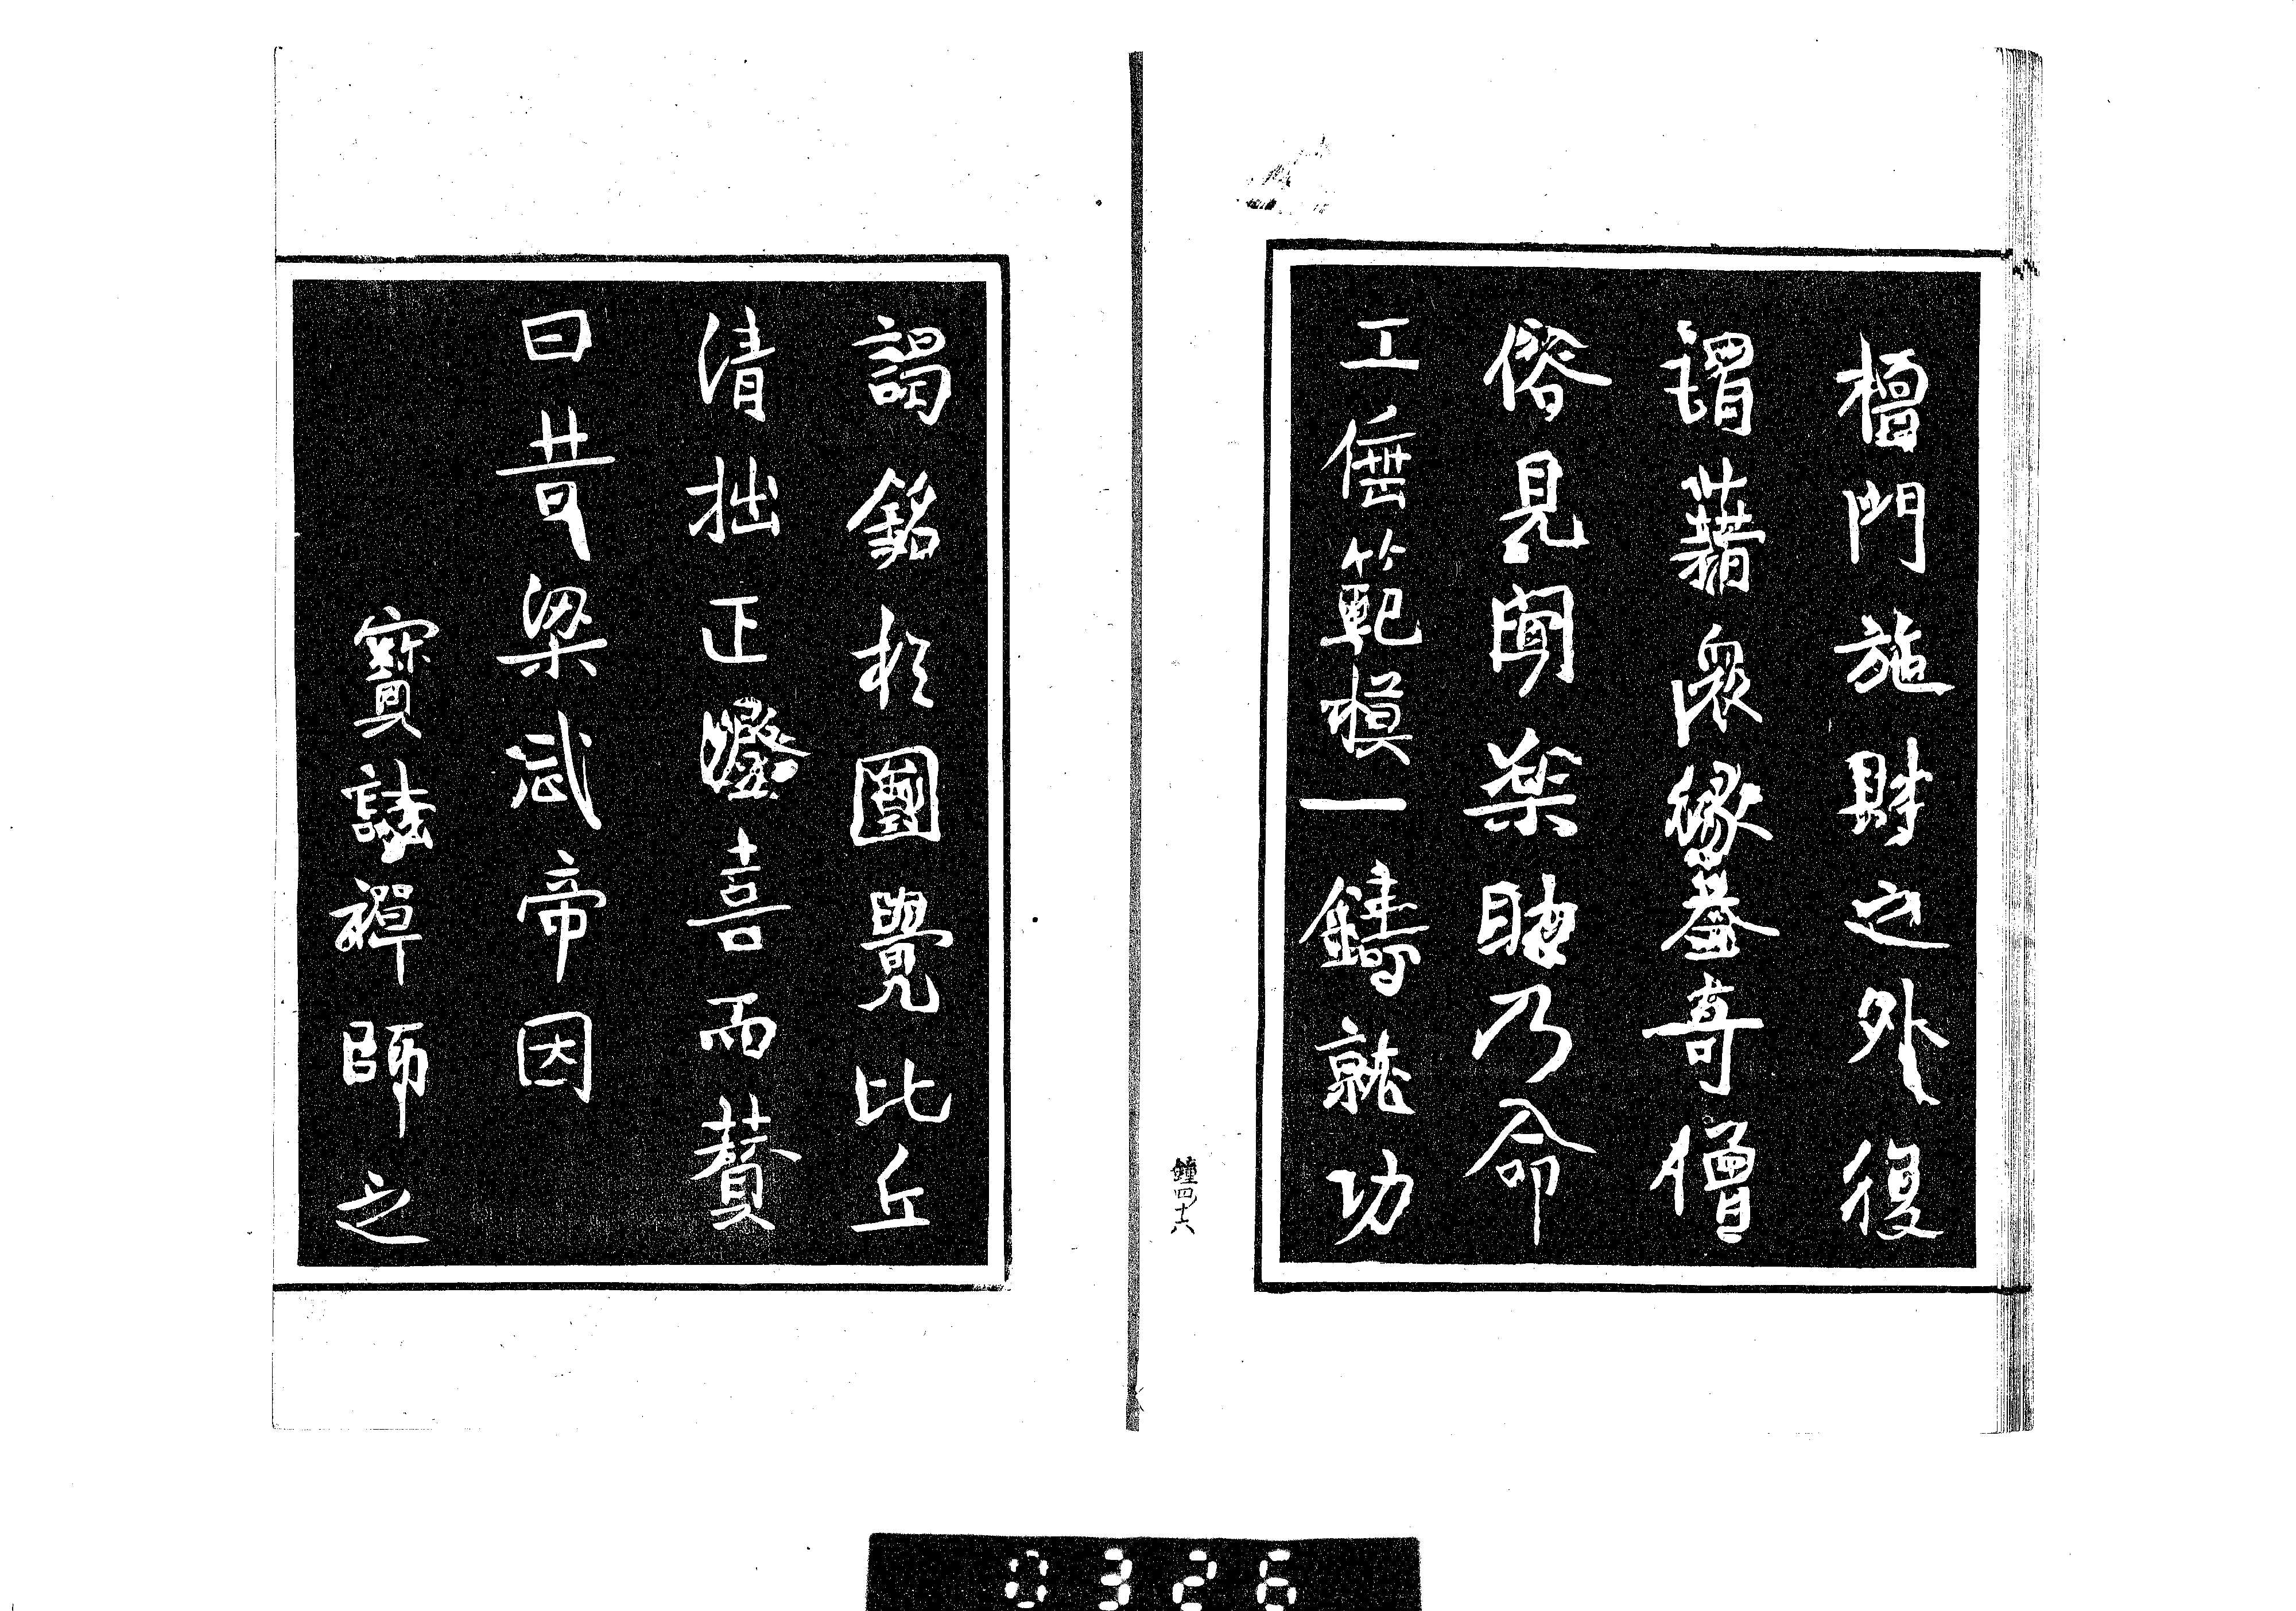 檀門施財之外復
謂藉衆緣蓋奇僧
俗見聞樂助乃命
工倕範模一鑄就功
鐘四ノ十六
謁銘於圓覺比丘
清拙正澄喜而贊
曰昔梁武帝因
寶誌禪師之
0326